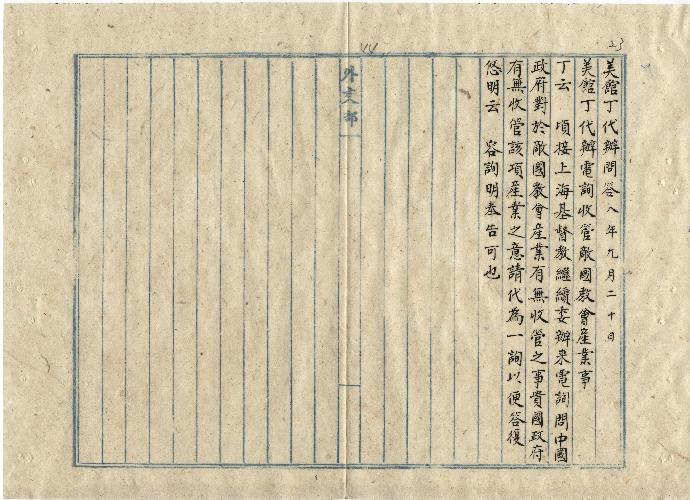 23
美館丁代辦問答 八年九月二十日
美館丁代辦電詢收管敵國教會產業事
丁云 頃接上海基督教繼續委辦来電詢問中國
政府對於敵國教會產業有無收管之事貴國政府
有無收管該項產業之意請代為一詢以便答復
悠明云 容詢明奉告可也
外交部